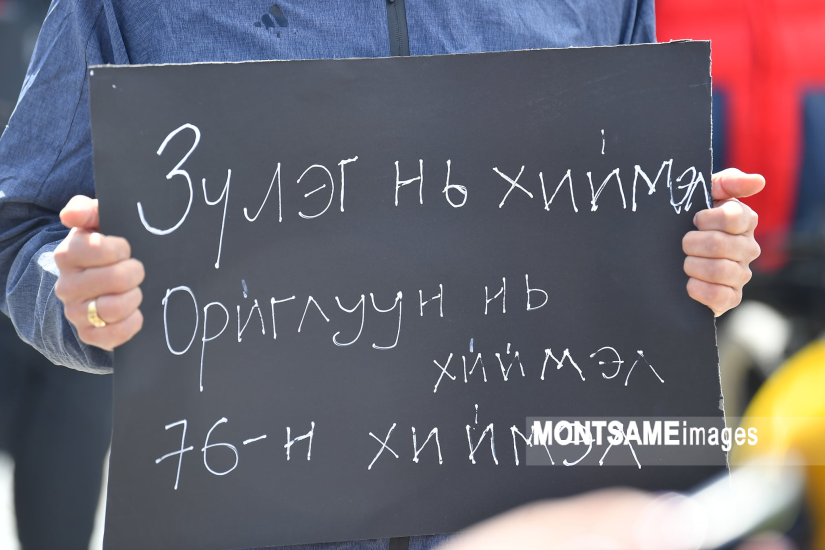 Зүлэг нь хиймэл
Ориглуун нь
хиймэл
76-н хиймэл
MONTSAME images